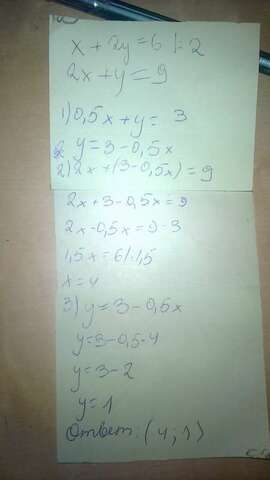 x + 2y = 6 |:2
2x + y = 9
1) 0,5x + y = 3
y = 3 - 0,5x
2) 2x + (3 - 0,5x) = 9
2x + 3 - 0,5x = 9
2x - 0,5x = 9 - 3
1,5x = 6 |:1,5
x = 4
3) y = 3 - 0,5x
y = 3 - 0,5·4
y = 3 - 2
y = 1
Ответ: (4; 1)